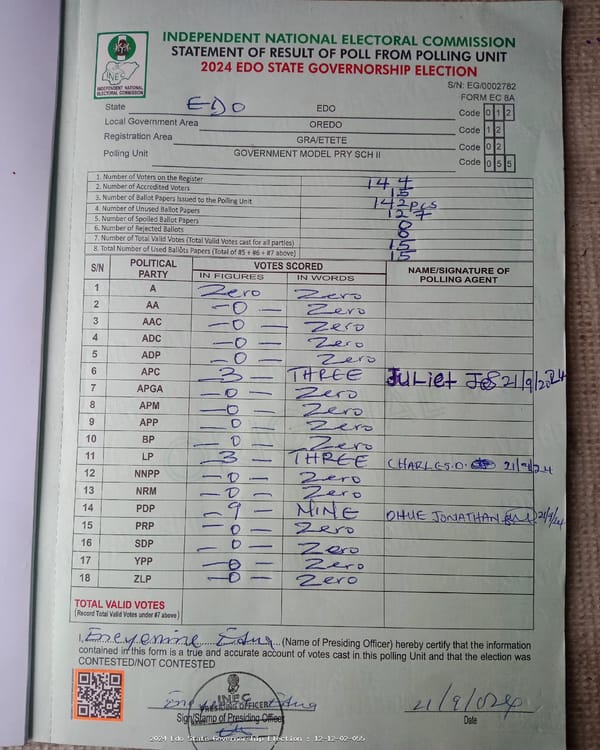 INDEPENDENT NATIONAL ELECTORAL COMMISSION
STATEMENT OF RESULT OF POLL FROM POLLING UNIT
2024 EDO STATE GOVERNORSHIP ELECTION
INEC
INDEPENDENT NATIONAL ELECTORAL COMMISSION
S/N: EG/0002782
FORM EC 8A
State EDO EDO Code 0 1 2
Local Government Area OREDO Code 1 2
Registration Area GRA/ETETE Code 0 2
Polling Unit GOVERNMENT MODEL PRY SCH II Code 0 5 5
1. Number of Voters on the Register 144
2. Number of Accredited Voters 15
3. Number of Ballot Papers Issued to the Polling Unit 142pcs
4. Number of Unused Ballot Papers 127
5. Number of Spoiled Ballot Papers 0
6. Number of Rejected Ballots 0
7. Number of Total Valid Votes (Total Valid Votes cast for all parties) 15
8. Total Number of Used Ballots Papers (Total of #5 + #6 + #7 above) 15
S/N POLITICAL PARTY VOTES SCORED NAME/SIGNATURE OF POLLING AGENT
IN FIGURES IN WORDS
1 A Zero Zero
2 AA -0- Zero
3 AAC -0- Zero
4 ADC -0- Zero
5 ADP -0- Zero
6 APC -3- THREE Juliet 21/9/2024
7 APGA -0- Zero
8 APM -0- Zero
9 APP -0- Zero
10 BP -0- Zero
11 LP -3- THREE CHARLES.O. 21/9/24
12 NNPP -0- Zero
13 NRM -0- Zero
14 PDP -9- NINE OHUE JONATHAN 21/9/24
15 PRP -0- Zero
16 SDP -0- Zero
17 YPP -0- Zero
18 ZLP -0- Zero
TOTAL VALID VOTES
(Record Total Valid Votes under #7 above)
I, (Name of Presiding Officer) hereby certify that the information
contained in this form is a true and accurate account of votes cast in this polling Unit and that the election was
CONTESTED/NOT CONTESTED
INEC
PRESIDING OFFICER
21/9/024
Sign/Stamp of Presiding Officer Date
2024 Edo State Governorship Election : 12-12-02-055